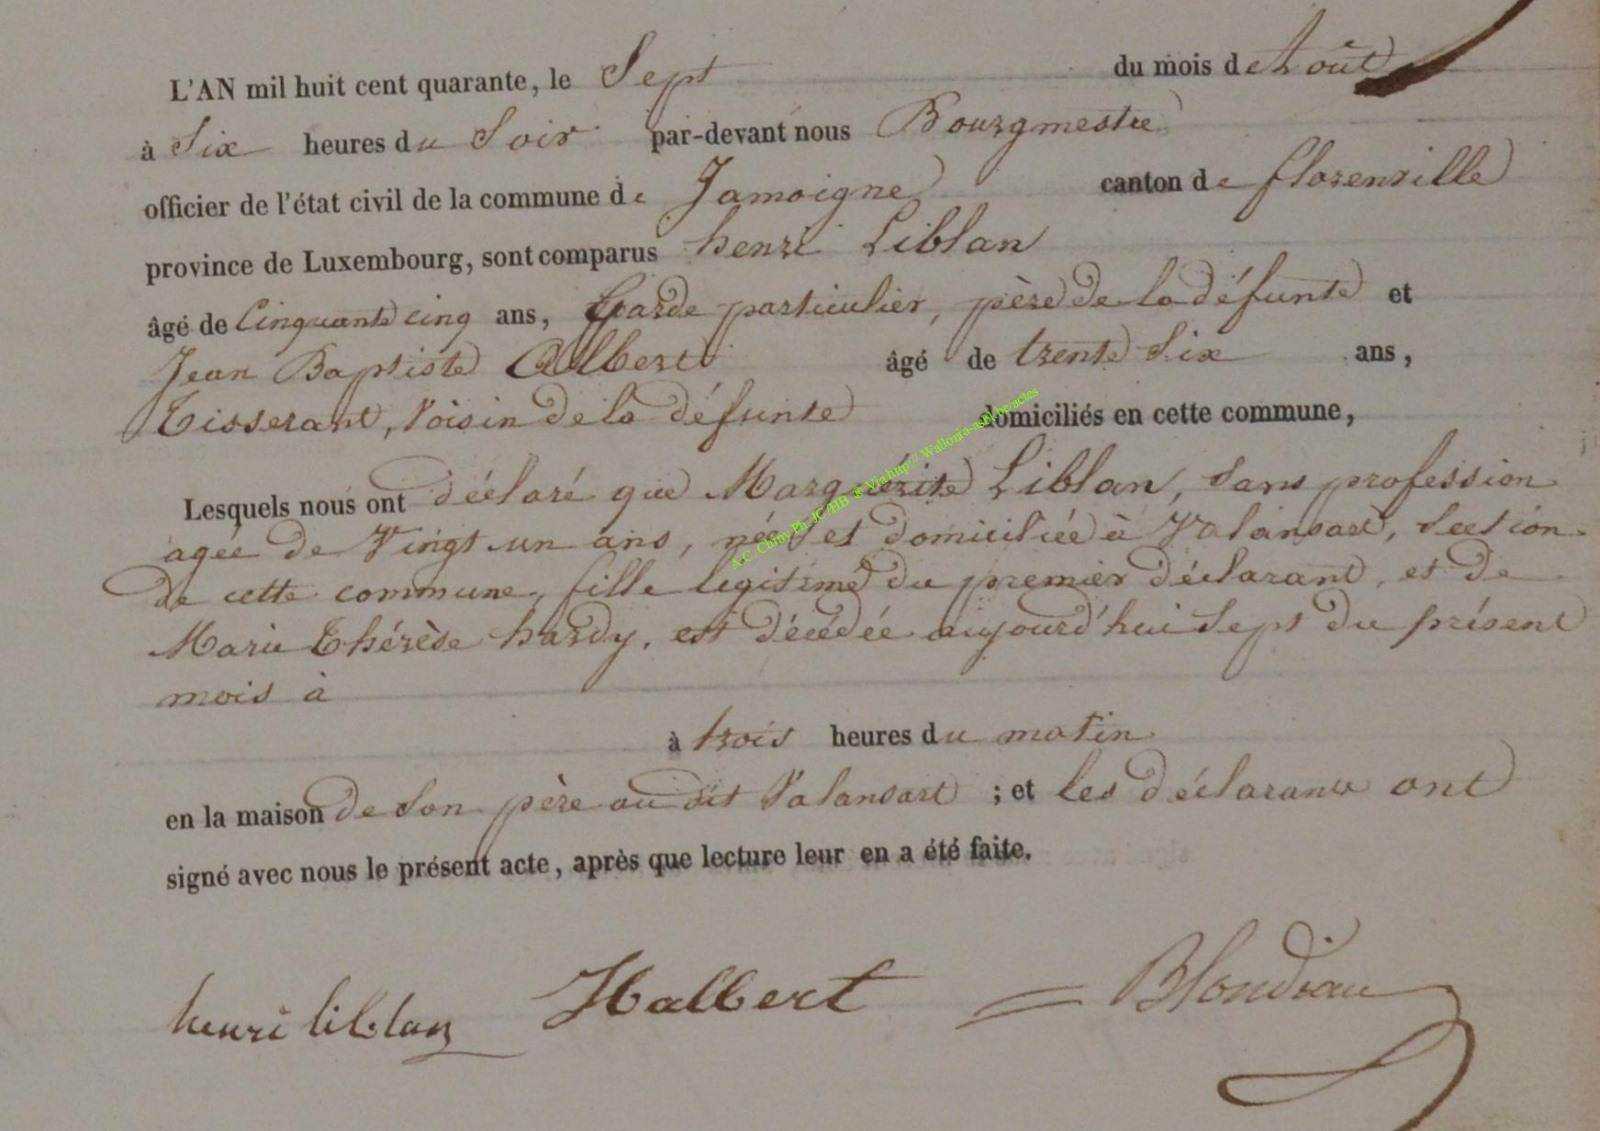 L'AN mil huit cent quarante, le Sept du mois de Août
à Six heures du Soir par-devant nous Bourgmestre
officier de l'état civil de la commune de Jamoigne canton de florenville
province de Luxembourg, sont comparus henri Liblan
âgé de Cinquante cinq ans, Garde particulier, père de la défunte et
Jean Baptiste Albert âgé de trente Six ans,
Tisserant, Voisin de la défunte domiciliés en cette commune,
Lesquels nous ont déclaré que Marguérite Liblan, Sans profession
agée de Vingt un ans, née et domiciliée à Valansart, Section
de cette commune, fille legitime du premier déclarant, et de
Marie Thérèse hardy, est décédée aujourd'hui Sept du présent
mois à
à trois heures du matin
en la maison de Son père au dit Valansart ; et les déclarans ont
signé avec nous le présent acte, après que lecture leur en a été faite.
henri liblan Halbert Blondiau